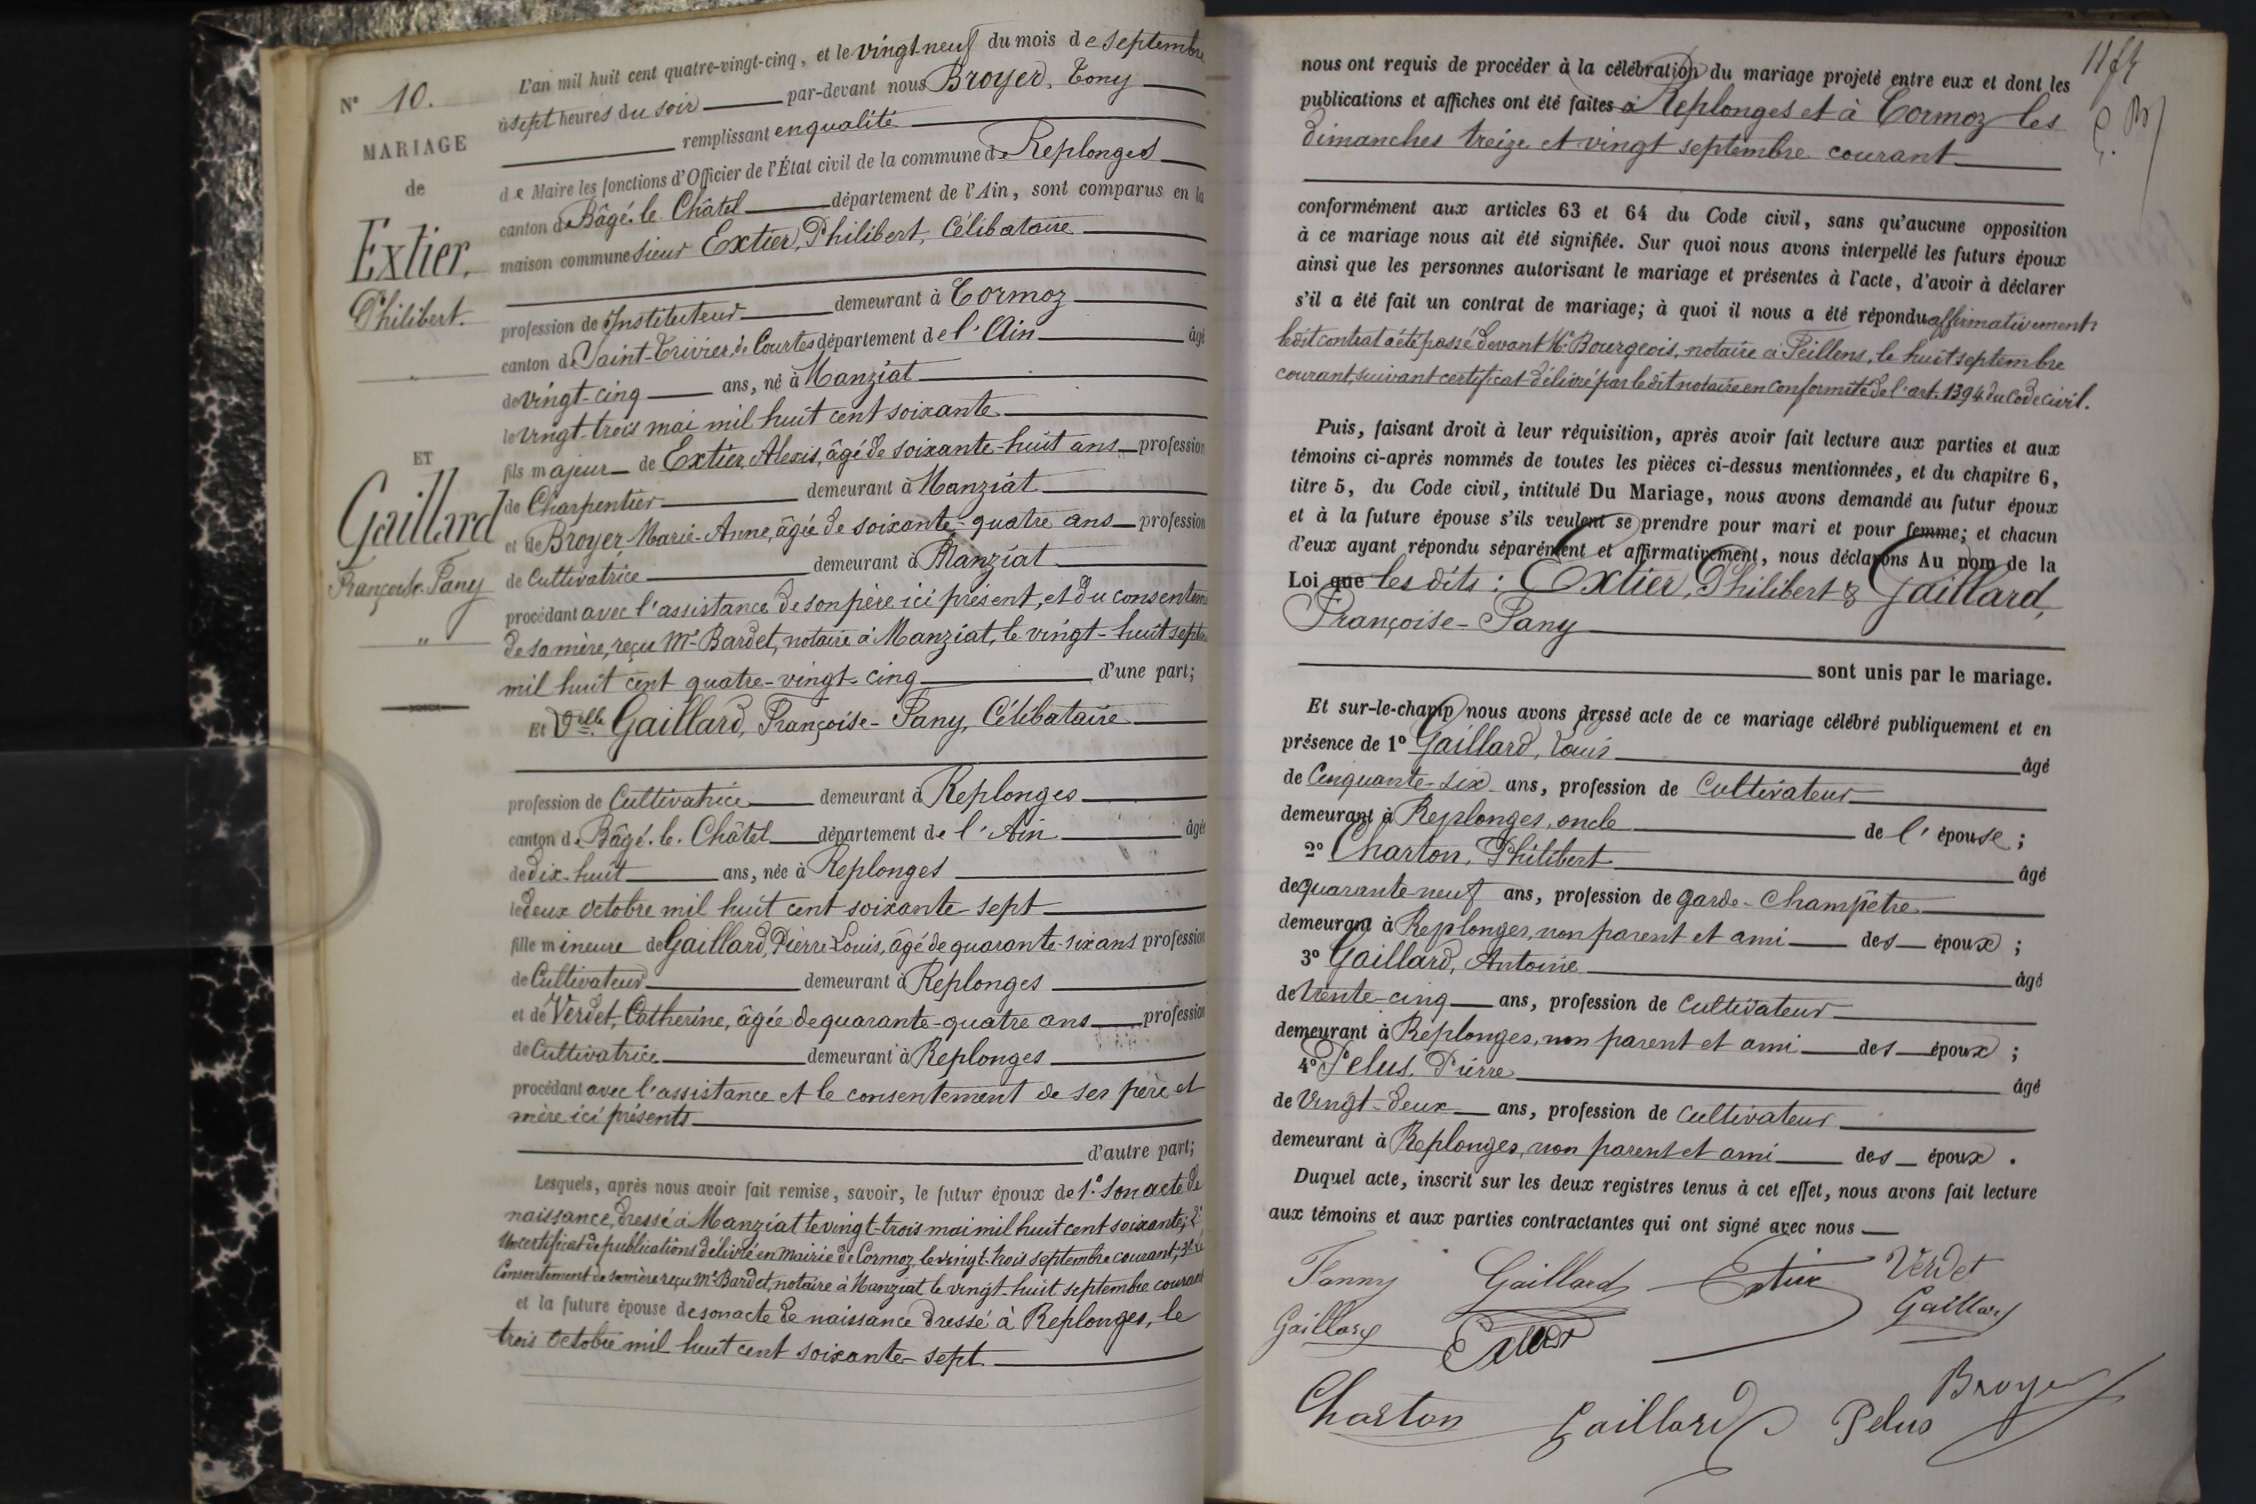 N° 10.
MARIAGE
de
Extier,
Philibert.
ET
Gaillard
Françoise-Fany
L'an mil huit cent quatre-vingt-cinq, et le vingt neuf du mois de septembre
à sept heures du soir par-devant nous Broyer, Tony
remplissant en qualité
de Maire les fonctions d'Officier de l'État civil de la commune de Replonges
canton de Bâgé-le-Châtel département de l'Ain, sont comparus en la
maison commune sieur Extier, Philibert, Célibataire
profession de Instituteur demeurant à Cormoz
canton de Saint-Trivier de Courtes département de l'Ain âgé
de vingt-cinq ans, né à Manziat
le vingt-trois mai mil huit cent soixante
fils majeur de Extier, Alexis, âgé de soixante-huit ans profession
de Charpentier demeurant à Manziat
et de Broyer, Marie-Anne, âgée de soixante-quatre ans profession
de Cultivatrice demeurant à Manziat
procédant avec l'assistance de son père ici présent, et du consentem
de sa mère, reçu Me Bardet, notaire à Manziat, le vingt-huit septe
mil huit cent quatre-vingt-cinq d'une part;
Et Delle Gaillard, Françoise-Fany, Célibataire
profession de Cultivatrice demeurant à Replonges
canton de Bâgé-le-Châtel département de l'Ain âgée
de dix-huit ans, née à Replonges
le deux octobre mil huit cent soixante-sept
fille mineure de Gaillard, Pierre Louis, âgé de quarante-six ans profession
de Cultivateur demeurant à Replonges
et de Verdet, Catherine, âgée de quarante-quatre ans profession
de Cultivatrice demeurant à Replonges
procédant avec l'assistance et le consentement de ses père et
mère ici présents
d'autre part;
Lesquels, après nous avoir fait remise, savoir, le futur époux de 1° Son acte de
naissance, dressé à Manziat le vingt-trois mai mil huit cent soixante; 2°
Un certificat de publications délivré en mairie de Cormoz, le vingt-trois septembre courant; 3° le
Consentement de sa mère reçu Me Bardet, notaire à Manziat le vingt-huit septembre courant
et la future épouse de son acte de naissance dressé à Replonges, le
trois octobre mil huit cent soixante-sept
nous ont requis de procéder à la célébration du mariage projeté entre eux et dont les
publications et affiches ont été faites à Replonges et à Cormoz les
dimanches treize et vingt septembre courant
conformément aux articles 63 et 64 du Code civil, sans qu'aucune opposition
à ce mariage nous ait été signifiée. Sur quoi nous avons interpellé les futurs époux
ainsi que les personnes autorisant le mariage et présentes à l'acte, d'avoir à déclarer
s'il a été fait un contrat de mariage; à quoi il nous a été répondu affirmativement:
ledit contrat a été passé devant Me Bourgeois, notaire à Feillens, le huit septembre
courant, suivant certificat délivré par ledit notaire en conformité de l'art. 1394 du Code civil.
Puis, faisant droit à leur réquisition, après avoir fait lecture aux parties et aux
témoins ci-après nommés de toutes les pièces ci-dessus mentionnées, et du chapitre 6,
titre 5, du Code civil, intitulé Du Mariage, nous avons demandé au futur époux
et à la future épouse s'ils veulent se prendre pour mari et pour femme; et chacun
d'eux ayant répondu séparément et affirmativement, nous déclarons Au nom de la
Loi que les dits: Extier, Philibert & Gaillard,
Françoise-Fany
sont unis par le mariage.
Et sur-le-champ nous avons dressé acte de ce mariage célébré publiquement et en
présence de 1° Gaillard, Louis âgé
de Cinquante-six ans, profession de Cultivateur
demeurant à Replonges, oncle de l'épouse;
2° Charton, Philibert âgé
de quarante-neuf ans, profession de garde-champêtre
demeurant à Replonges, non parent et ami des époux;
3° Gaillard, Antoine âgé
de trente-cinq ans, profession de cultivateur
demeurant à Replonges, non parent et ami des époux;
4° Pelus, Pierre âgé
de vingt-deux ans, profession de cultivateur
demeurant à Replonges, non parent et ami des époux.
Duquel acte, inscrit sur les deux registres tenus à cet effet, nous avons fait lecture
aux témoins et aux parties contractantes qui ont signé avec nous
Fanny Gaillard Extier Verdet
Gaillard Extier Gaillard
Charton Gaillard Pelus Broyer